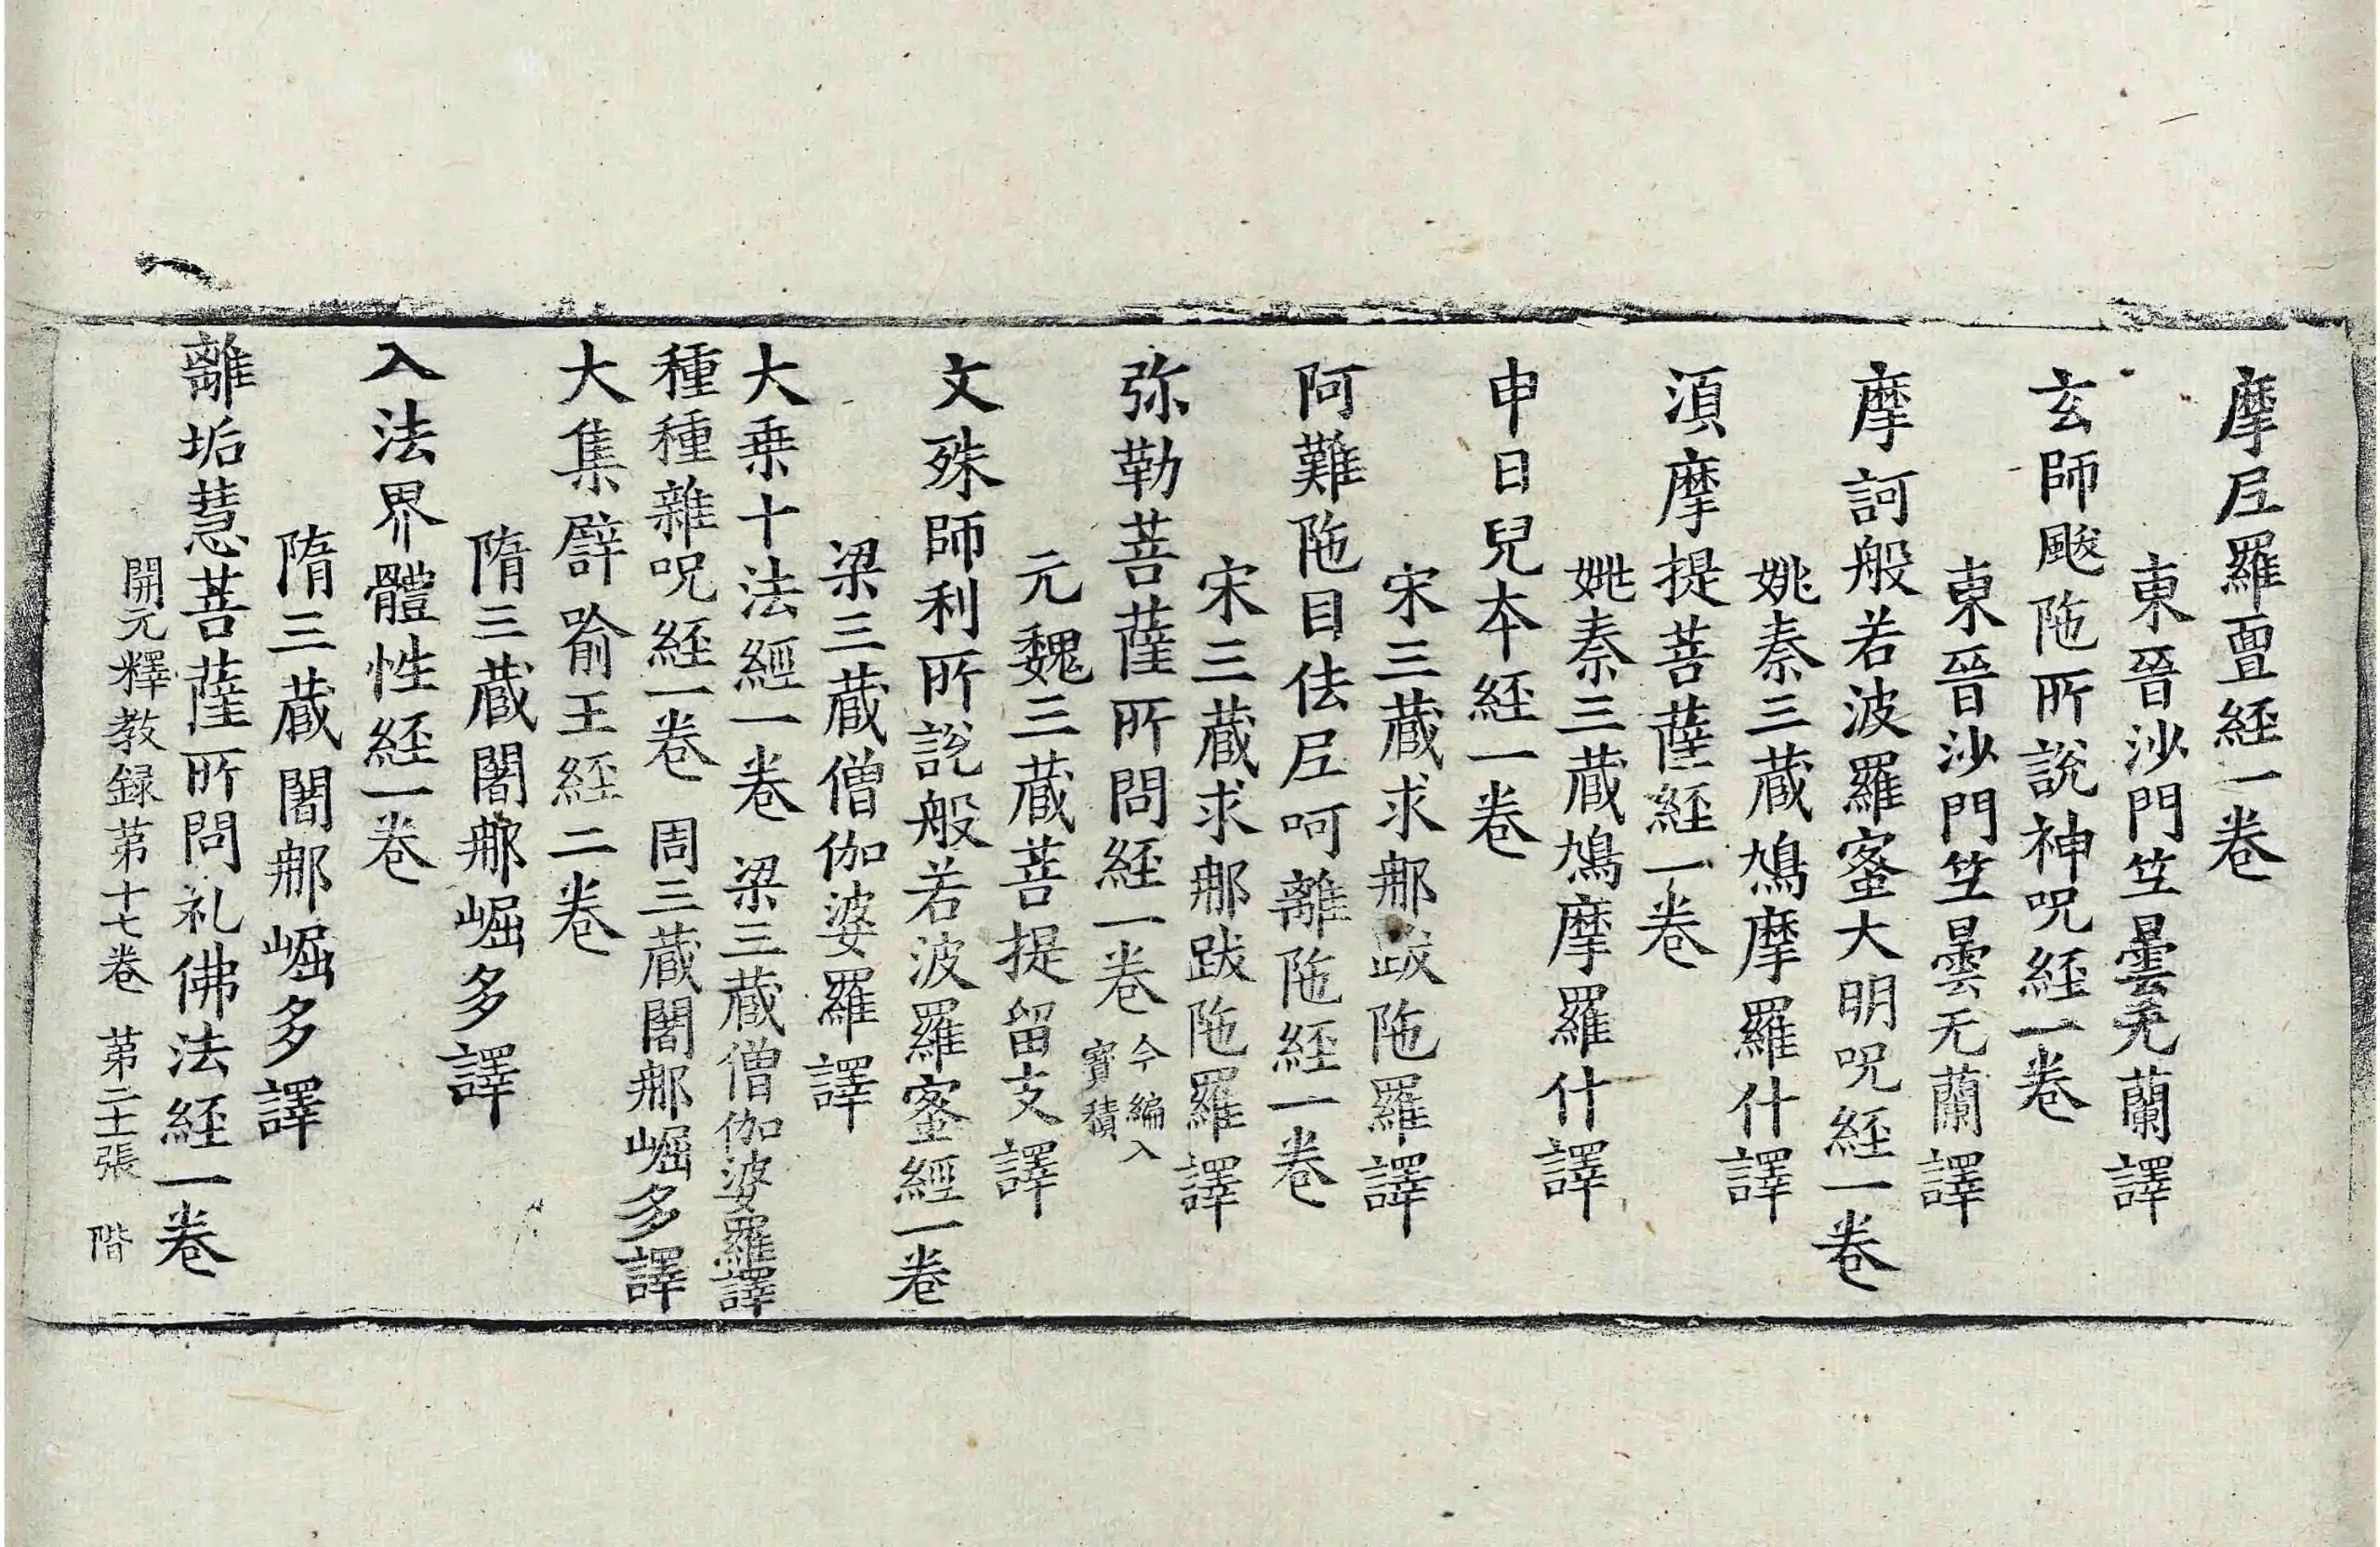 摩尼羅亶経一卷
東晉沙門竺曇无蘭譯
玄師颰陁所說神呪経一卷
東晉沙門竺曇无蘭譯
摩訶般若波羅蜜大明呪経一卷
姚秦三藏鳩摩羅什譯
湏摩提菩薩経一卷
姚秦三藏鳩摩羅什譯
申日兒夲経一卷
宋三藏求那跋陁羅譯
阿難陁目佉尼呵離陁経一卷
宋三藏求那跋陁羅譯
弥勒菩薩所問経一卷 今編入
寳積
元魏三藏菩提留支譯
文殊師利所說般若波羅蜜經一卷
梁三藏僧伽婆羅譯
大乗十法經一卷 梁三藏僧伽婆羅譯
種種雜呪経一卷 周三藏闍那崛多譯
大集譬喻王経二卷
隋三藏闍那崛多譯
入法界體性経一卷
隋三藏闍那崛多譯
離垢慧菩薩所問礼佛法経一卷
開元釋教録苐十七卷 苐二十張 階